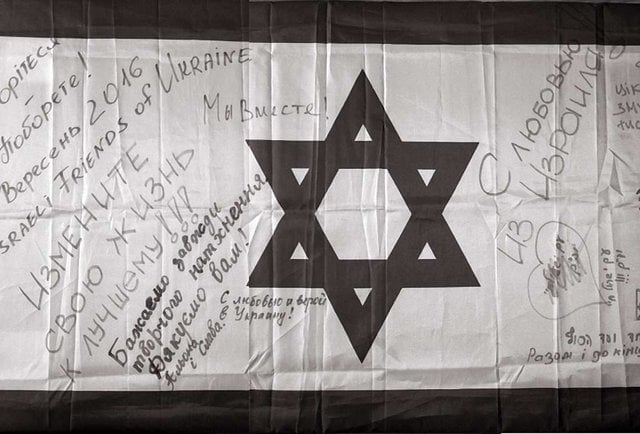 Поборете!
Вересень 2016
ISRAELI FRIENDS of UKRAINE
Мы Вместе!
ИЗМЕНИТЕ
СВОЮ ЖИЗНЬ
К ЛУЧШЕМУ!!!
Бажаємо завжди
творчого натхнення
Дякуємо вам!
і Слава.
С любовью и верой
в Украину!
С ЛЮБОВЬЮ
ИЗ ИЗРАИЛЯ
Разом і до кінця